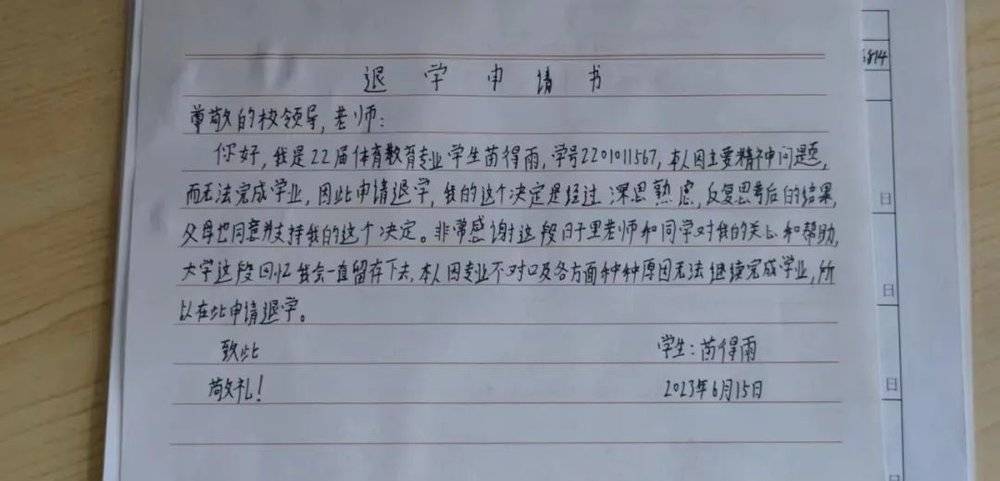 退学申请书
尊敬的校领导,老师:
你好,我是22届体育教育专业学生苗得雨,学号2201011567,本人因主要精神问题,
而无法完成学业,因此申请退学,我的这个决定是经过深思熟虑,反复思考后的结果,
父母也同意并支持我的这个决定。非常感谢这段日子里老师和同学对我的关心和帮助,
大学这段回忆我会一直留存下去,本人因专业不对口及各方面种种原因无法继续完成学业,所
以在此申请退学。
致此 学生:苗得雨
敬礼! 2023年6月15日
日
日
日
日